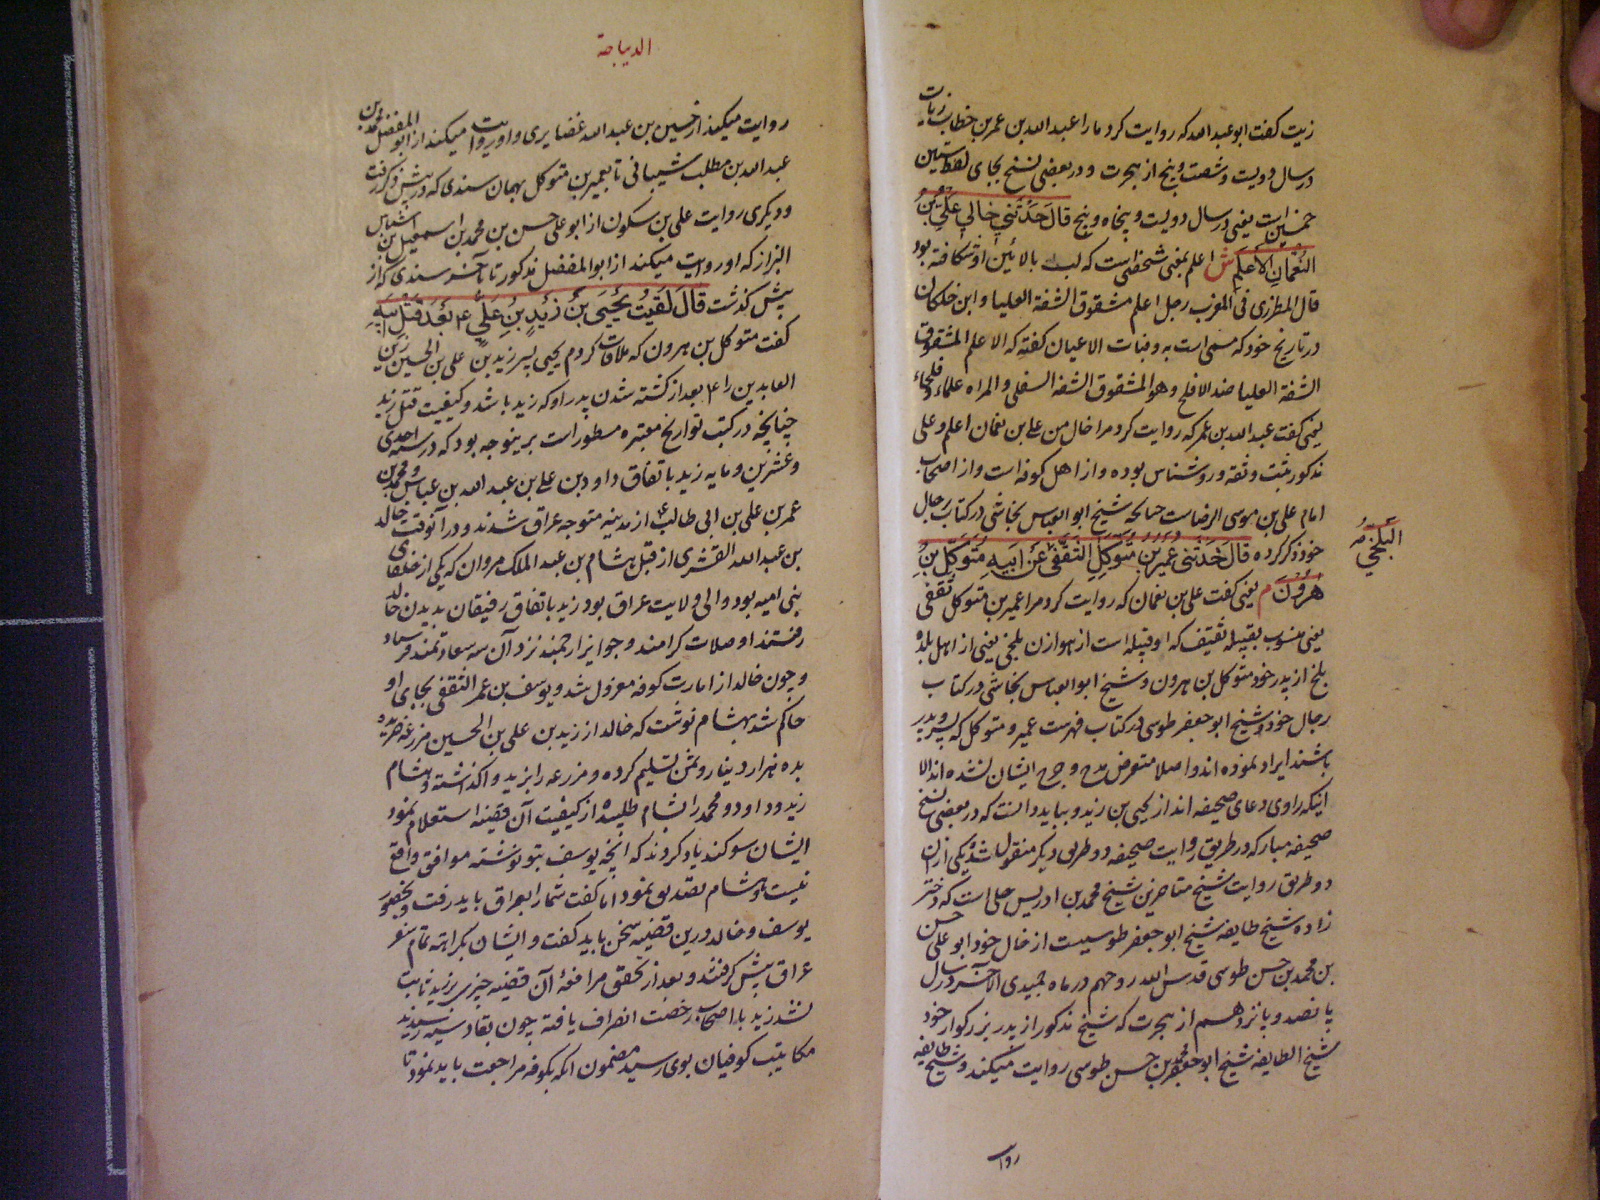 زیت گفت ابو عبد الله که روایت کرد مارا عبد الله بن عمر بن خطاب زیات
در سال دویست و شصت و پنج از هجرت و در بعضی نسخ بجای لفظ ستین
خمسین است یعنی در سال دویست و پنجاه و پنج قَالَ حَدَّثَنِي خَالِي عَلِيُّ بْنُ
النُّعْمَانِ الأَعْلَمِ ش اعلم بمعنی شخصی است که لب بالائین او شکافته بود
قال المطرزی فی المغرب رجل اعلم مشقوق الشفة العلیا و ابن خلکان
در تاریخ خود که مسمی است به وفیات الاعیان گفته که الاعلم المشقوق
الشفة العلیا ضد الافلح و هو المشقوق الشفه السفلی و المراه علماء و فلحاء
یعنی گفت عبد الله بن عمر که روایت کرد مرا خال من علی بن نعمان اعلم و علی
مذکور ثبت و ثقه و روشناس بوده و از اهل کوفه است و از اصحاب
امام علی بن موسی الرضاست چنانچه شیخ ابو العباس نجاشی در کتاب رجال
خود ذکر کرده قَالَ حَدَّثَنِي عُمَيْرُ بْنُ مُتَوَكِّلٍ الثَّقَفِيُّ عَنْ أَبِيهِ مُتَوَكِّلِ بْنِ
البلخی
هٰرُونَ م یعنی گفت علی بن نعمان که روایت کرد مرا عمیر بن متوکل ثقفی
یعنی منسوب بقبیله ثقیف که او قبیله است از هوازن بلخی یعنی از اهل بلده
بلخ از پدر خود متوکل بن هرون و شیخ ابو العباس نجاشی در کتاب
رجال خود و شیخ ابو جعفر طوسی در کتاب فهرست عمیر و متوکل که پسر و پدر
باشند ایراد نموده اند و اصلا متعرض مدح و جرح ایشان نشده اند الا
اینکه راوی دعای صحیفه اند از یحیی بن زید و بباید دانست که در بعضی نسخ
صحیفه مبارکه در طریق روایت صحیفه دو طریق دیگر منقول شده یکی از ان
دو طریق روایت شیخ متاخرین شیخ محمد بن ادریس حلی است که دختر
زاده شیخ طایفه شیخ ابو جعفر طوسیست از خال خود ابو علی حسن
بن محمد بن حسن طوسی قدس الله روحهم در ماه جمیدی الآخر در سال
پانصد و یازدهم از هجرت که شیخ مذکور از پدر بزرگوار خود
شیخ الطایفه شیخ ابو جعفر محمد بن حسن طوسی روایت میکند و شیخ طایفه
روا
الدیباجة
روایت میکند از حسین بن عبد الله غضایری و او روایت میکند از ابو المفضل محمد بن
عبد الله بن مطلب شیبانی تا بعمیر بن متوکل بهمان سندی که در پیش ذکر رفت
و دیگری روایت علی بن سکون از ابو علی حسن بن محمد بن اسمعیل بن اشناس
البزاز که او روایت میکند از ابو المفضل مذکور تا آخر سندی که از
پیش گذشت قَالَ لَقِيتُ يَحْيَى بْنَ زَيْدِ بْنِ عَلِيٍّ ع بَعْدَ قَتْلِ أَبِيهِ
گفت متوکل بن هرون که ملاقات کردم یحیی پسر زید بن علی بن الحسین زین
العابدین را ع بعد از کشته شدن پدر او که زید باشد و کیفیت قتل زید
چنانچه در کتب تواریخ معتبره مسطور است برینوجه بود که در سنه احدی
و عشرین و مایه زید باتفاق داود بن علی بن عبد الله بن عباس و محمد بن
عمر بن علی بن ابی طالب ع از مدینه متوجه عراق شدند و در آنوقت خالد
بن عبد الله القشری از قبل هشام بن عبد الملک مروان که یکی از خلفای
بنی امیه بود والی ولایت عراق بود زید باتفاق رفیقان بدیدن خالد
رفتند او صلات گرامند و جوایز ارجمند نزد آن سه سعادتمند فرستاد
و چون خالد از امارت کوفه معزول شد و یوسف بن عمر الثقفی بجای او
حاکم شد بهشام نوشت که خالد از زید بن علی بن الحسین مزرعه خریده
بده هزار دینار و ثمن تسلیم کرده و مزرعه را بزید واگذاشته و هشام
زید و داود و محمد را بشام طلبیده از کیفیت آن قضیه استعلام نمود
ایشان سوگند یاد کردند که آنچه یوسف بتو نوشته موافق واقع
نیست و هشام تصدیق نمود اما گفت شما را بعراق باید رفت و بحضور
یوسف و خالد درین قضیه سخن باید گفت و ایشان بکراهة تمام سفر
عراق پیش گرفتند و بعد از تحقق مرافعهٔ آن قضیه چیزی بر زید ثابت
نشد زید با اصحاب رخصت انصراف یافته چون بقادسیه رسیدند
مکاتیب کوفیان بوی رسید مضمون آنکه بکوفه مراجعت باید نمود تا